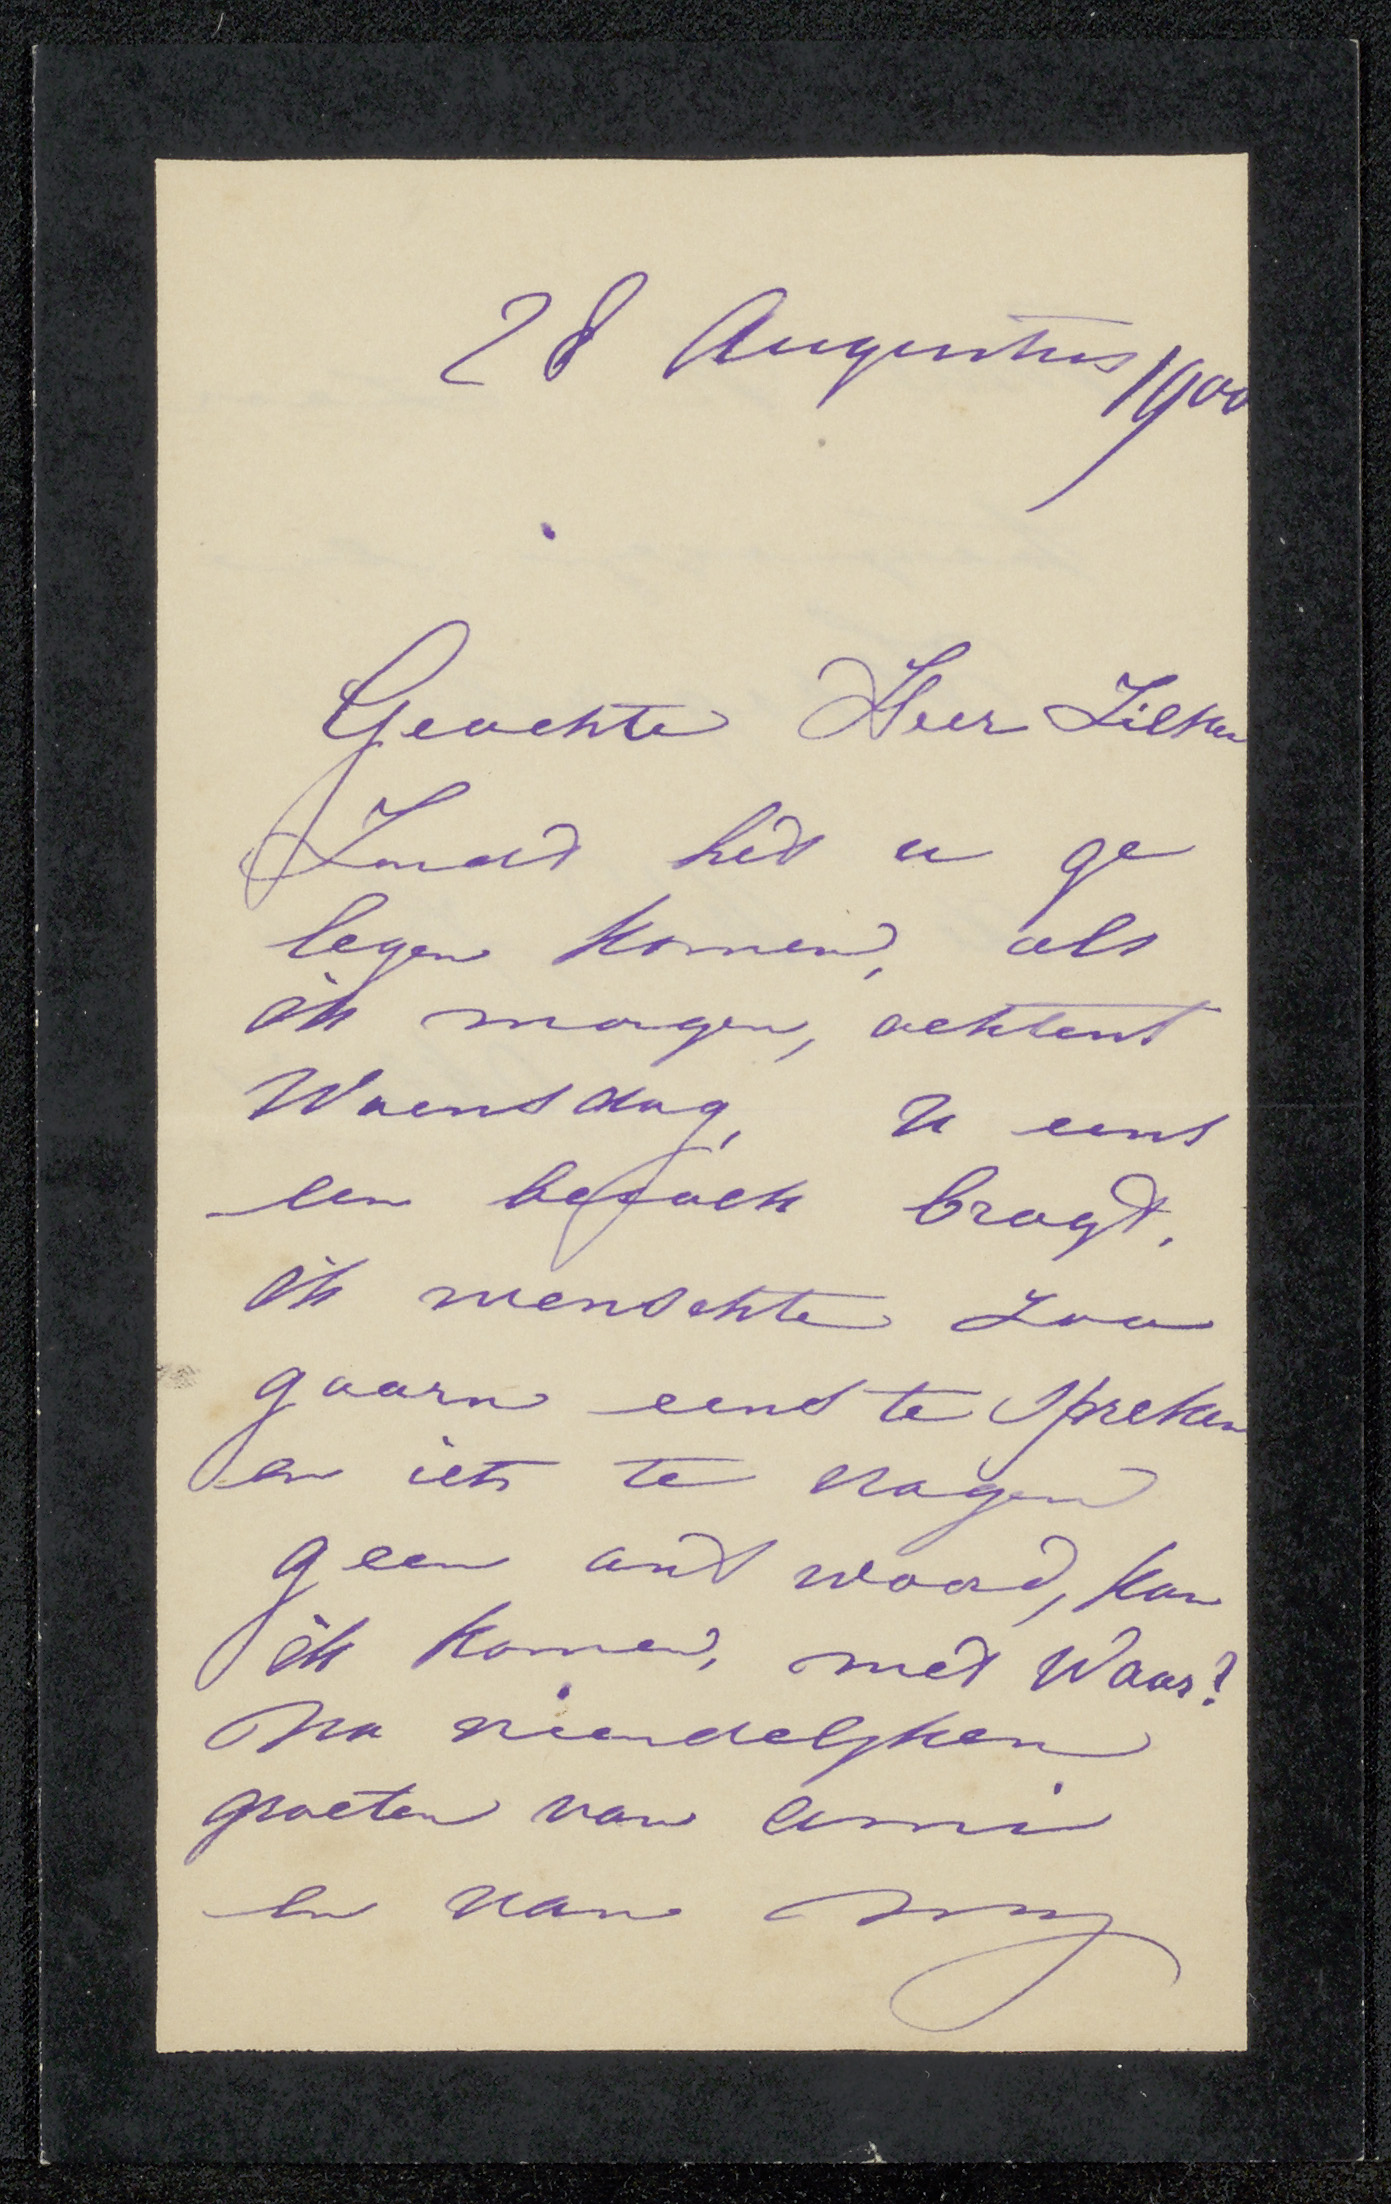 28 Augustus 1900
Geachte Heer Zilken
Zoudt hèt u ge
legen komen, als
ik morgen, achtent
Woensdag, u eens
een bezoek bragt.
ik wenschte zoo
gaarn eens te spreken
en iets te vragen
geen ant woord, kan
ik komen, niet Waar?
Na vriendelyken
groeten van Ami
en van my